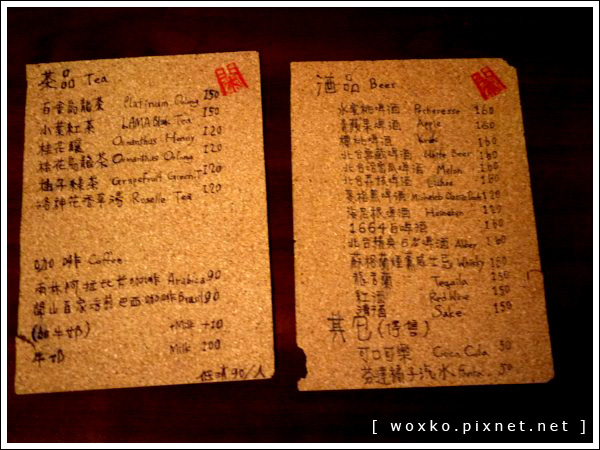 茶品 Tea
白金烏龍茶 Platinum Oolong 150
小葉紅茶 LAMA Tea 150
桂花釀 Osmanthus Honey 120
桂花烏龍茶 Osmanthus Oolong 120
柚子綠茶 Grapefruit Green T 120
洛神花香草湯 Roselle Tea 120
咖啡 Coffee
雨林阿拉比卡咖啡 Arabica 90
關山百家活莊巴西咖啡 Brasil 90
(加牛奶) +Milk +10
牛奶 Milk 200
低消 90/人
酒品 Beer
水蜜桃啤酒 Pecheresse 160
青蘋果啤酒 Apple 160
櫻桃啤酒 160
北台 啤酒 White Beer 160
北台哈密瓜啤酒 Melon 160
北台荔枝啤酒 160
黑啤酒 160
海尼根啤酒 Heineken 160
1664白啤酒 160
北台 啤酒 Abbey 160
蘇格蘭 威士忌 Whisky 160
龍舌蘭 Tequila 150
紅酒 Red Wine 150
清酒 Sake 150
其它
可口可樂 Coca Cola 50
芬達橘子汽水 Fanta 50
[ woxko.pixnet.net ]